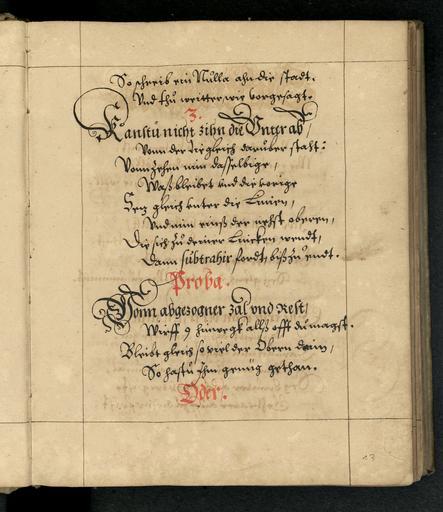 So schreib ein Nulla ahn die stadt.
Vnd thů weitter, wie vorgesagt.
3.
Kanstu nicht zihn die Vnter ab,
Vonn der die gleich darüber staht:
Vonn Zehen nim dasselbige,
Waß bleibet vnd die vorige
Setz gleich vnter die Linien,
Vnd nim einß der nehst oberen,
Die sich zu deiner Lincken wendt,
Dann subtrahir fordt, biß zu endt.
Proba.
Vonn abgezogner zal vnd Rest,
Wirff 9 hinwegk allß offt du magst.
Bleibt gleich so viel der Obern dein,
So hastu ihm genug gethan.
Oder.
13